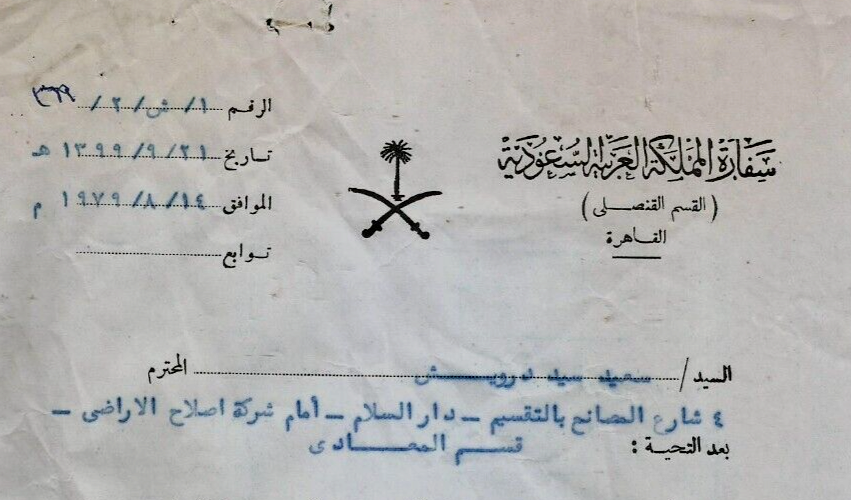 سفارة المملكة العربية السعودية
( القسم القنصلى )
القاهرة
الرقم ١/ش/٢/٣٦٩
تاريخ ١٣٩٩/٩/٢١ هـ
الموافق ١٩٧٩/٨/١٤ م
توابع
السيد / سعيد سيد درويش المحترم
٤ شارع المصانع بالتقسيم - دار السلام - أمام شركة اصلاح الاراضى -
بعد التحية : قسم المعادى